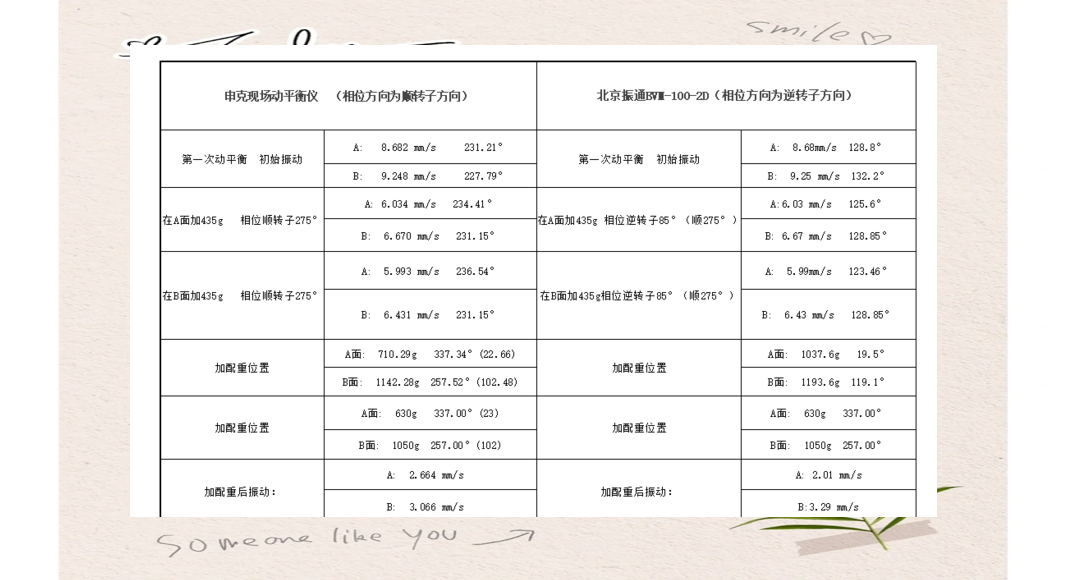 smile
申克现场动平衡仪 （相位方向为顺转子方向）
北京振通BVM-100-2D（相位方向为逆转子方向）
第一次动平衡 初始振动
A: 8.682 mm/s 231.21°
B: 9.248 mm/s 227.79°
第一次动平衡 初始振动
A: 8.68mm/s 128.8°
B: 9.25 mm/s 132.2°
在A面加435g 相位顺转子275°
A: 6.034 mm/s 234.41°
B: 6.670 mm/s 231.15°
在A面加435g 相位逆转子85°（顺275°）
A:6.03 mm/s 125.6°
B: 6.67 mm/s 128.85°
在B面加435g 相位顺转子275°
A: 5.993 mm/s 236.54°
B: 6.431 mm/s 231.15°
在B面加435g相位逆转子85°（顺275°）
A: 5.99mm/s 123.46°
B: 6.43 mm/s 128.85°
加配重位置
A面: 710.29g 337.34°(22.66)
B面: 1142.28g 257.52°(102.48)
加配重位置
A面: 1037.6g 19.5°
B面: 1193.6g 119.1°
加配重位置
A面: 630g 337.00°(23)
B面: 1050g 257.00°(102)
加配重位置
A面: 630g 337.00°
B面: 1050g 257.00°
加配重后振动：
A: 2.664 mm/s
B: 3.066 mm/s
加配重后振动：
A: 2.01 mm/s
B:3.29 mm/s
Someone like you